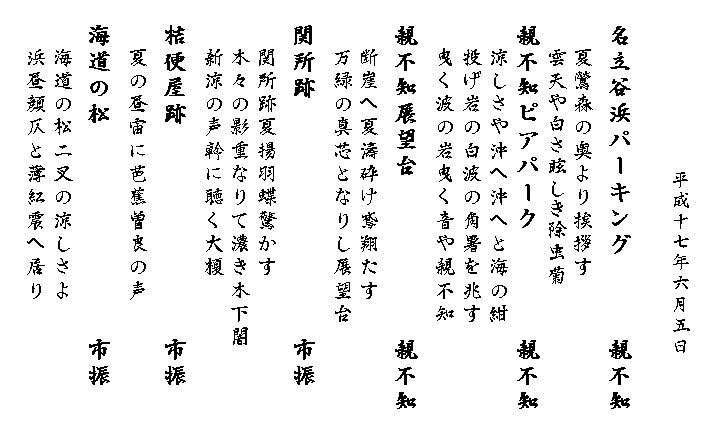 平成十七年六月五日
名立谷浜パーキング 親不知
夏鶯森の奥より挨拶す
雲天や白さ眩しき除虫菊
親不知ピアパーク 親不知
涼しさや沖へ沖へと海の紺
投げ岩の白波の角暑を兆す
曳く波の岩曳く音や親不知
親不知展望台 親不知
断崖へ夏濤砕け鳶翔たす
万緑の真芯となりし展望台
関所跡 市振
関所跡夏揚羽蝶驚かす
木々の影重なりて濃き木下闇
新涼の声幹に聴く大榎
桔梗屋跡 市振
夏の昼宙に芭蕉曽良の声
海道の松 市振
海道の松二叉の涼しさよ
浜昼顔仄と薄紅震へ居り